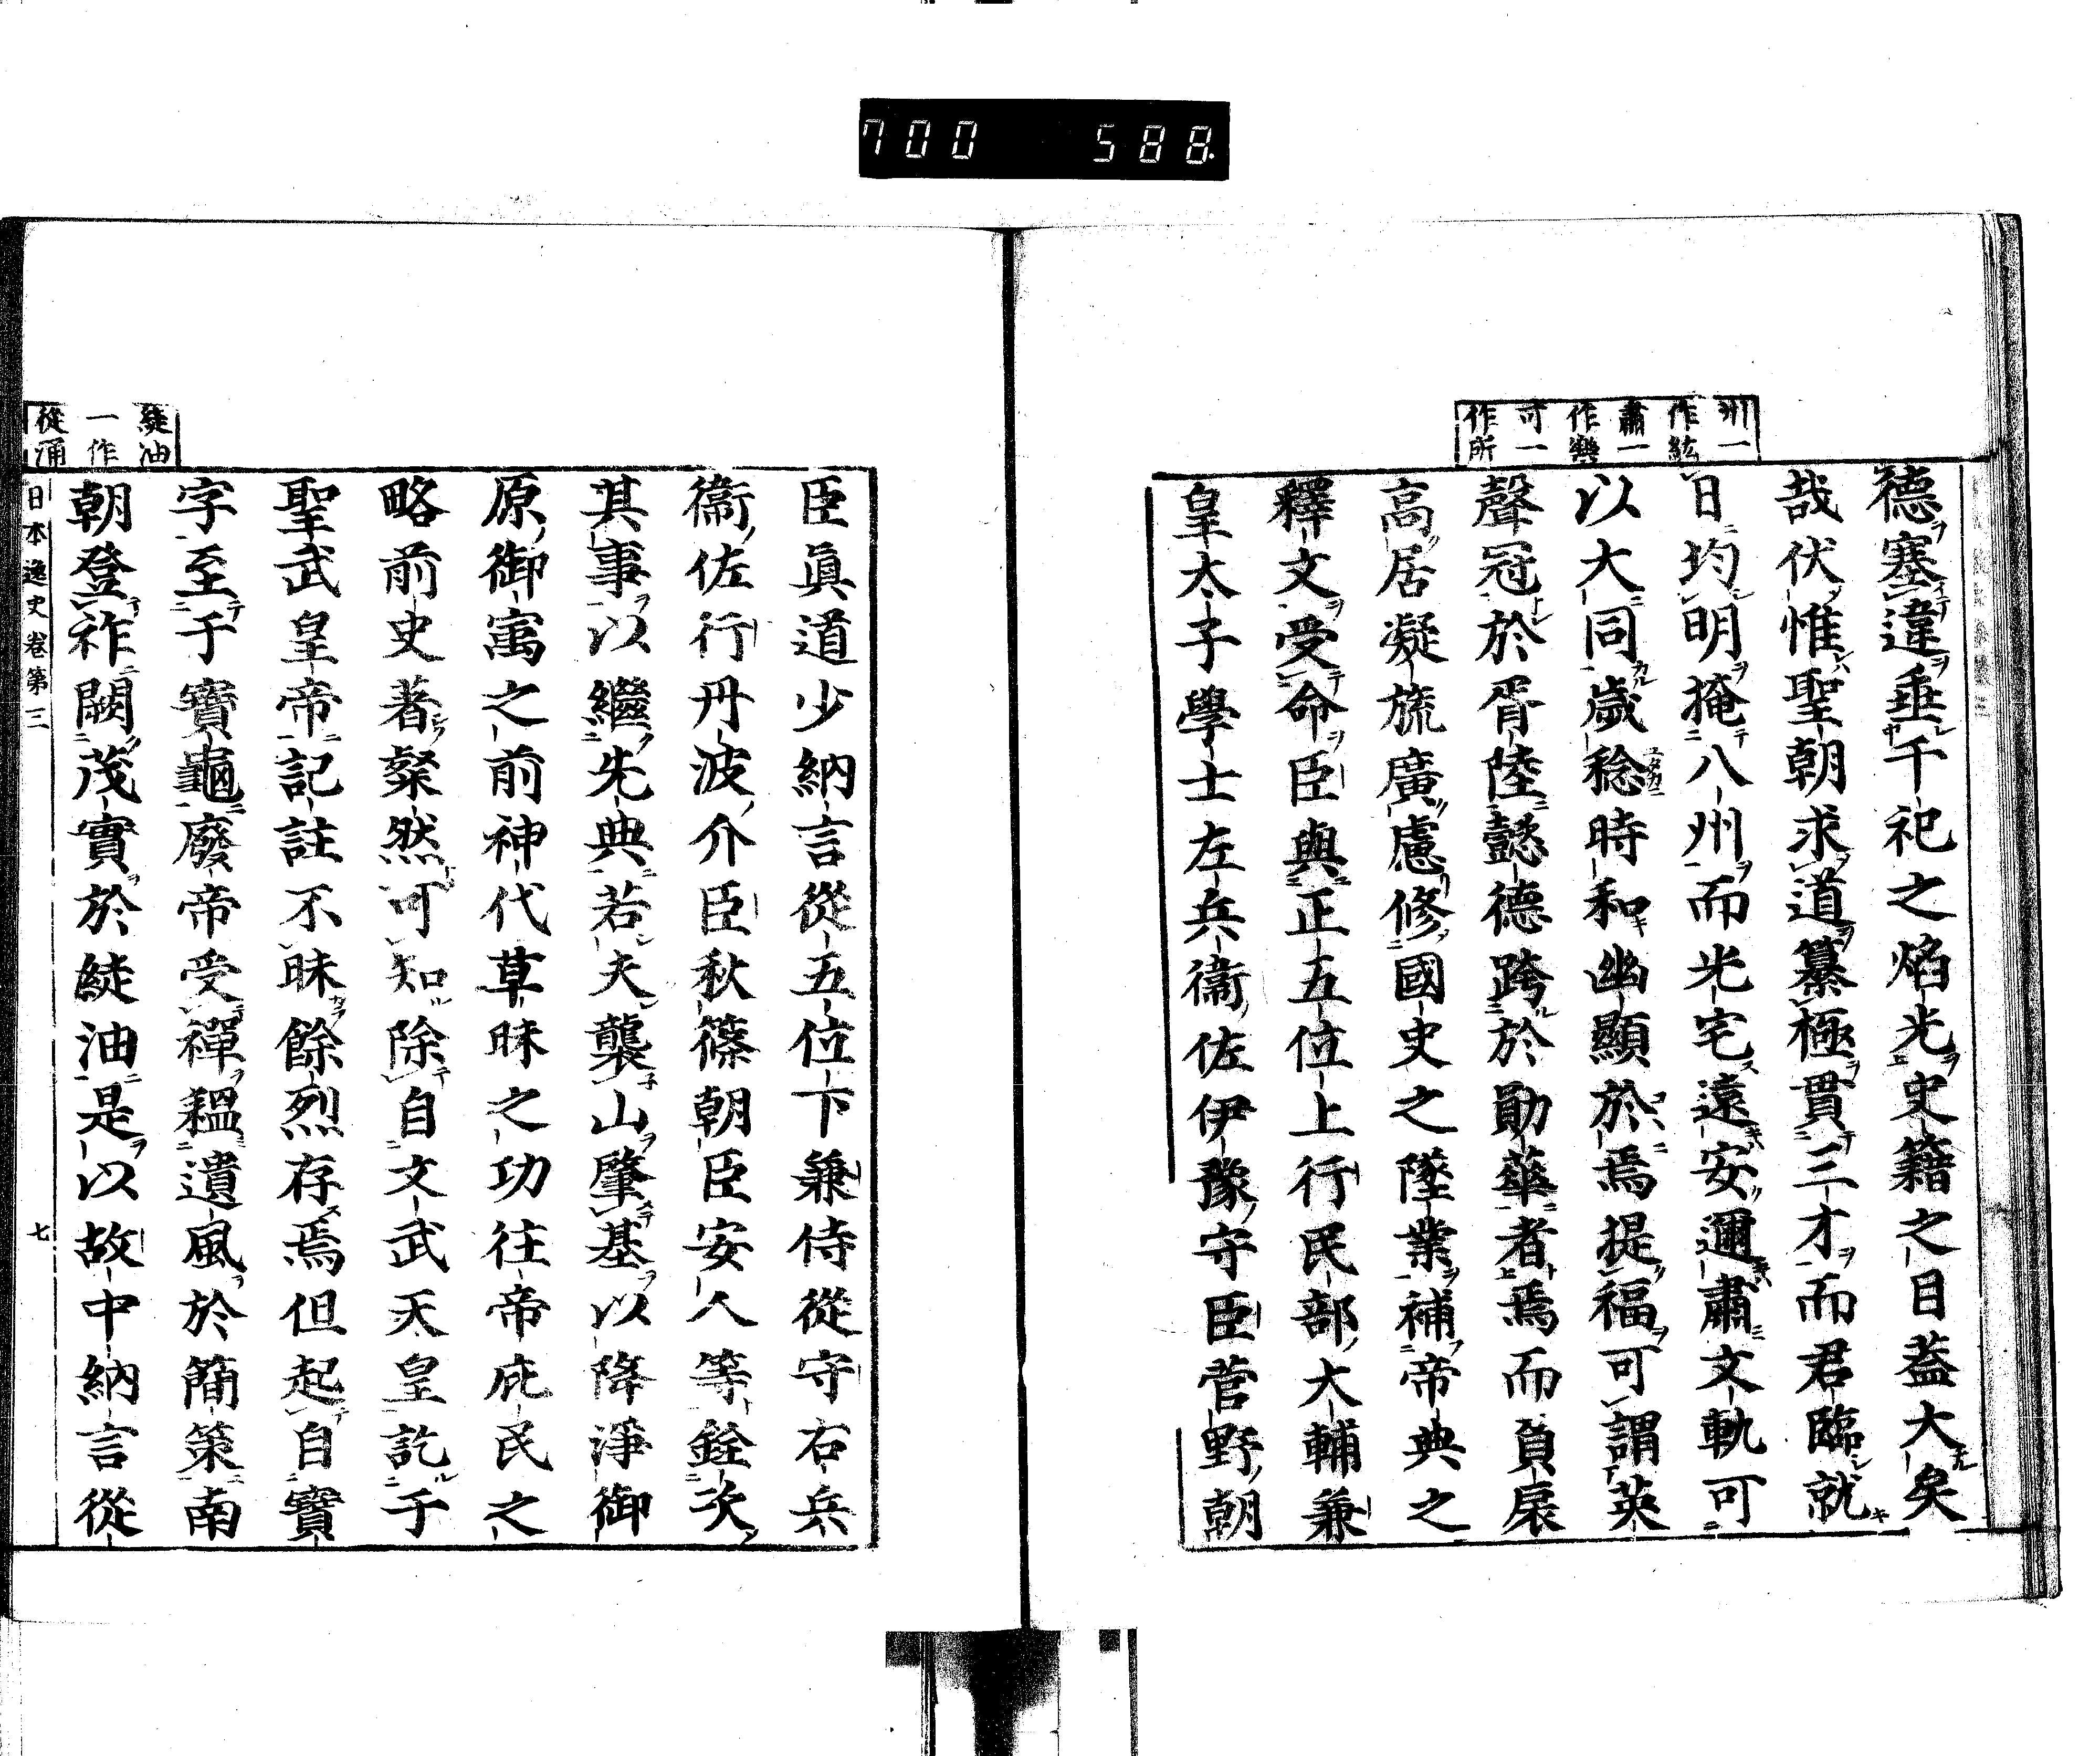 700 588
州一
作紘
肅一
作樂
可一
作所
德塞違垂千祀之焰光史籍之目葢大矣
哉伏惟聖朝求道纂極貫三才而君臨就
日均明掩八州而光宅遠安邇肅文軌可
以大同歲稔時和幽顯於焉提福可謂英
聲冠於胥陸懿德跨於勛華者焉而負扆
高居凝旒廣慮修國史之墜業補帝典之
釋文受命臣與正五位上行民部大輔兼
皇太子學士左兵衞佐伊豫守臣菅野朝
臣眞道少納言從五位下兼侍從守右兵
衞佐行丹波介臣秋篠朝臣安人等銓次
其事以繼先典若夫襲山肇基以降淨御
原御寓之前神代草昧之功往帝庇民之
略前史著粲然可知除自文武天皇訖于
聖武皇帝記註不昧餘烈存焉但起自寶
字至于寶龜廢帝受禪韞遺風於簡策南
朝登祚闕茂實於緃油是以故中納言從
緃油
一作
從涌
日本逸史卷第三 七